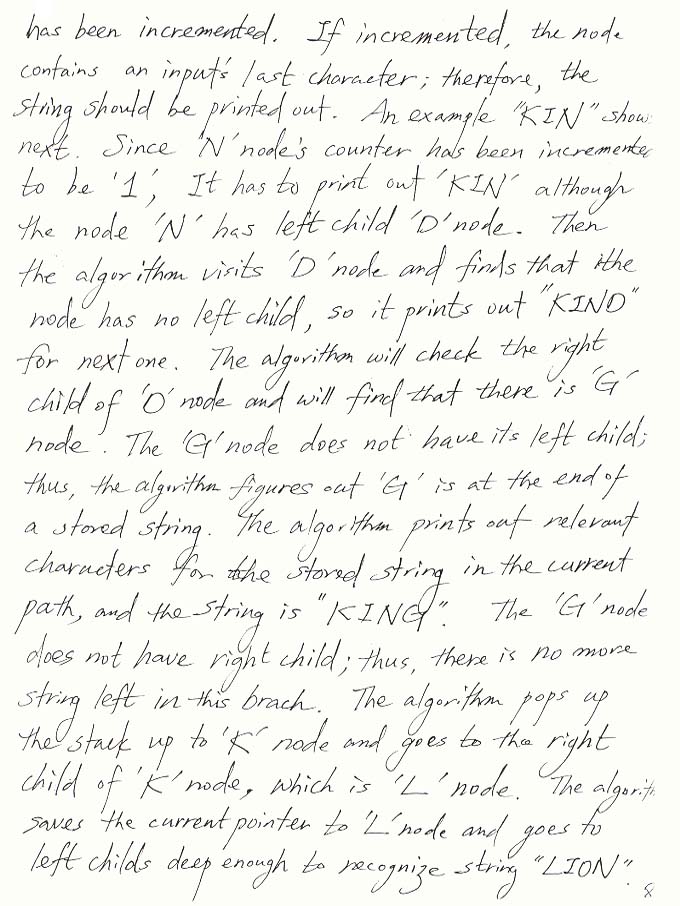 has been incremented. If incremented, the node
contains an input's last character; therefore, the
string should be printed out. An example "KIN" show
next. Since 'N' node's counter has been incremente
to be '1', It has to print out 'KIN' although
the node 'N' has left child 'D' node. Then
the algorithm visits 'D' node and finds that the
node has no left child, so it prints out "KIND"
for next one. The algorithm will check the right
child of 'D' node and will find that there is 'G'
node. The 'G' node does not have its left child;
thus, the algorithm figures out 'G' is at the end of
a stored string. The algorithm prints out relevant
characters for the stored string in the current
path, and the string is "KING". The 'G' node
does not have right child; thus, there is no more
string left in this brach. The algorithm pops up
the stack up to 'K' node and goes to the right
child of 'K' node, which is 'L' node. The algorith
saves the current pointer to 'L' node and goes to
left childs deep enough to recognize string "LION".
8